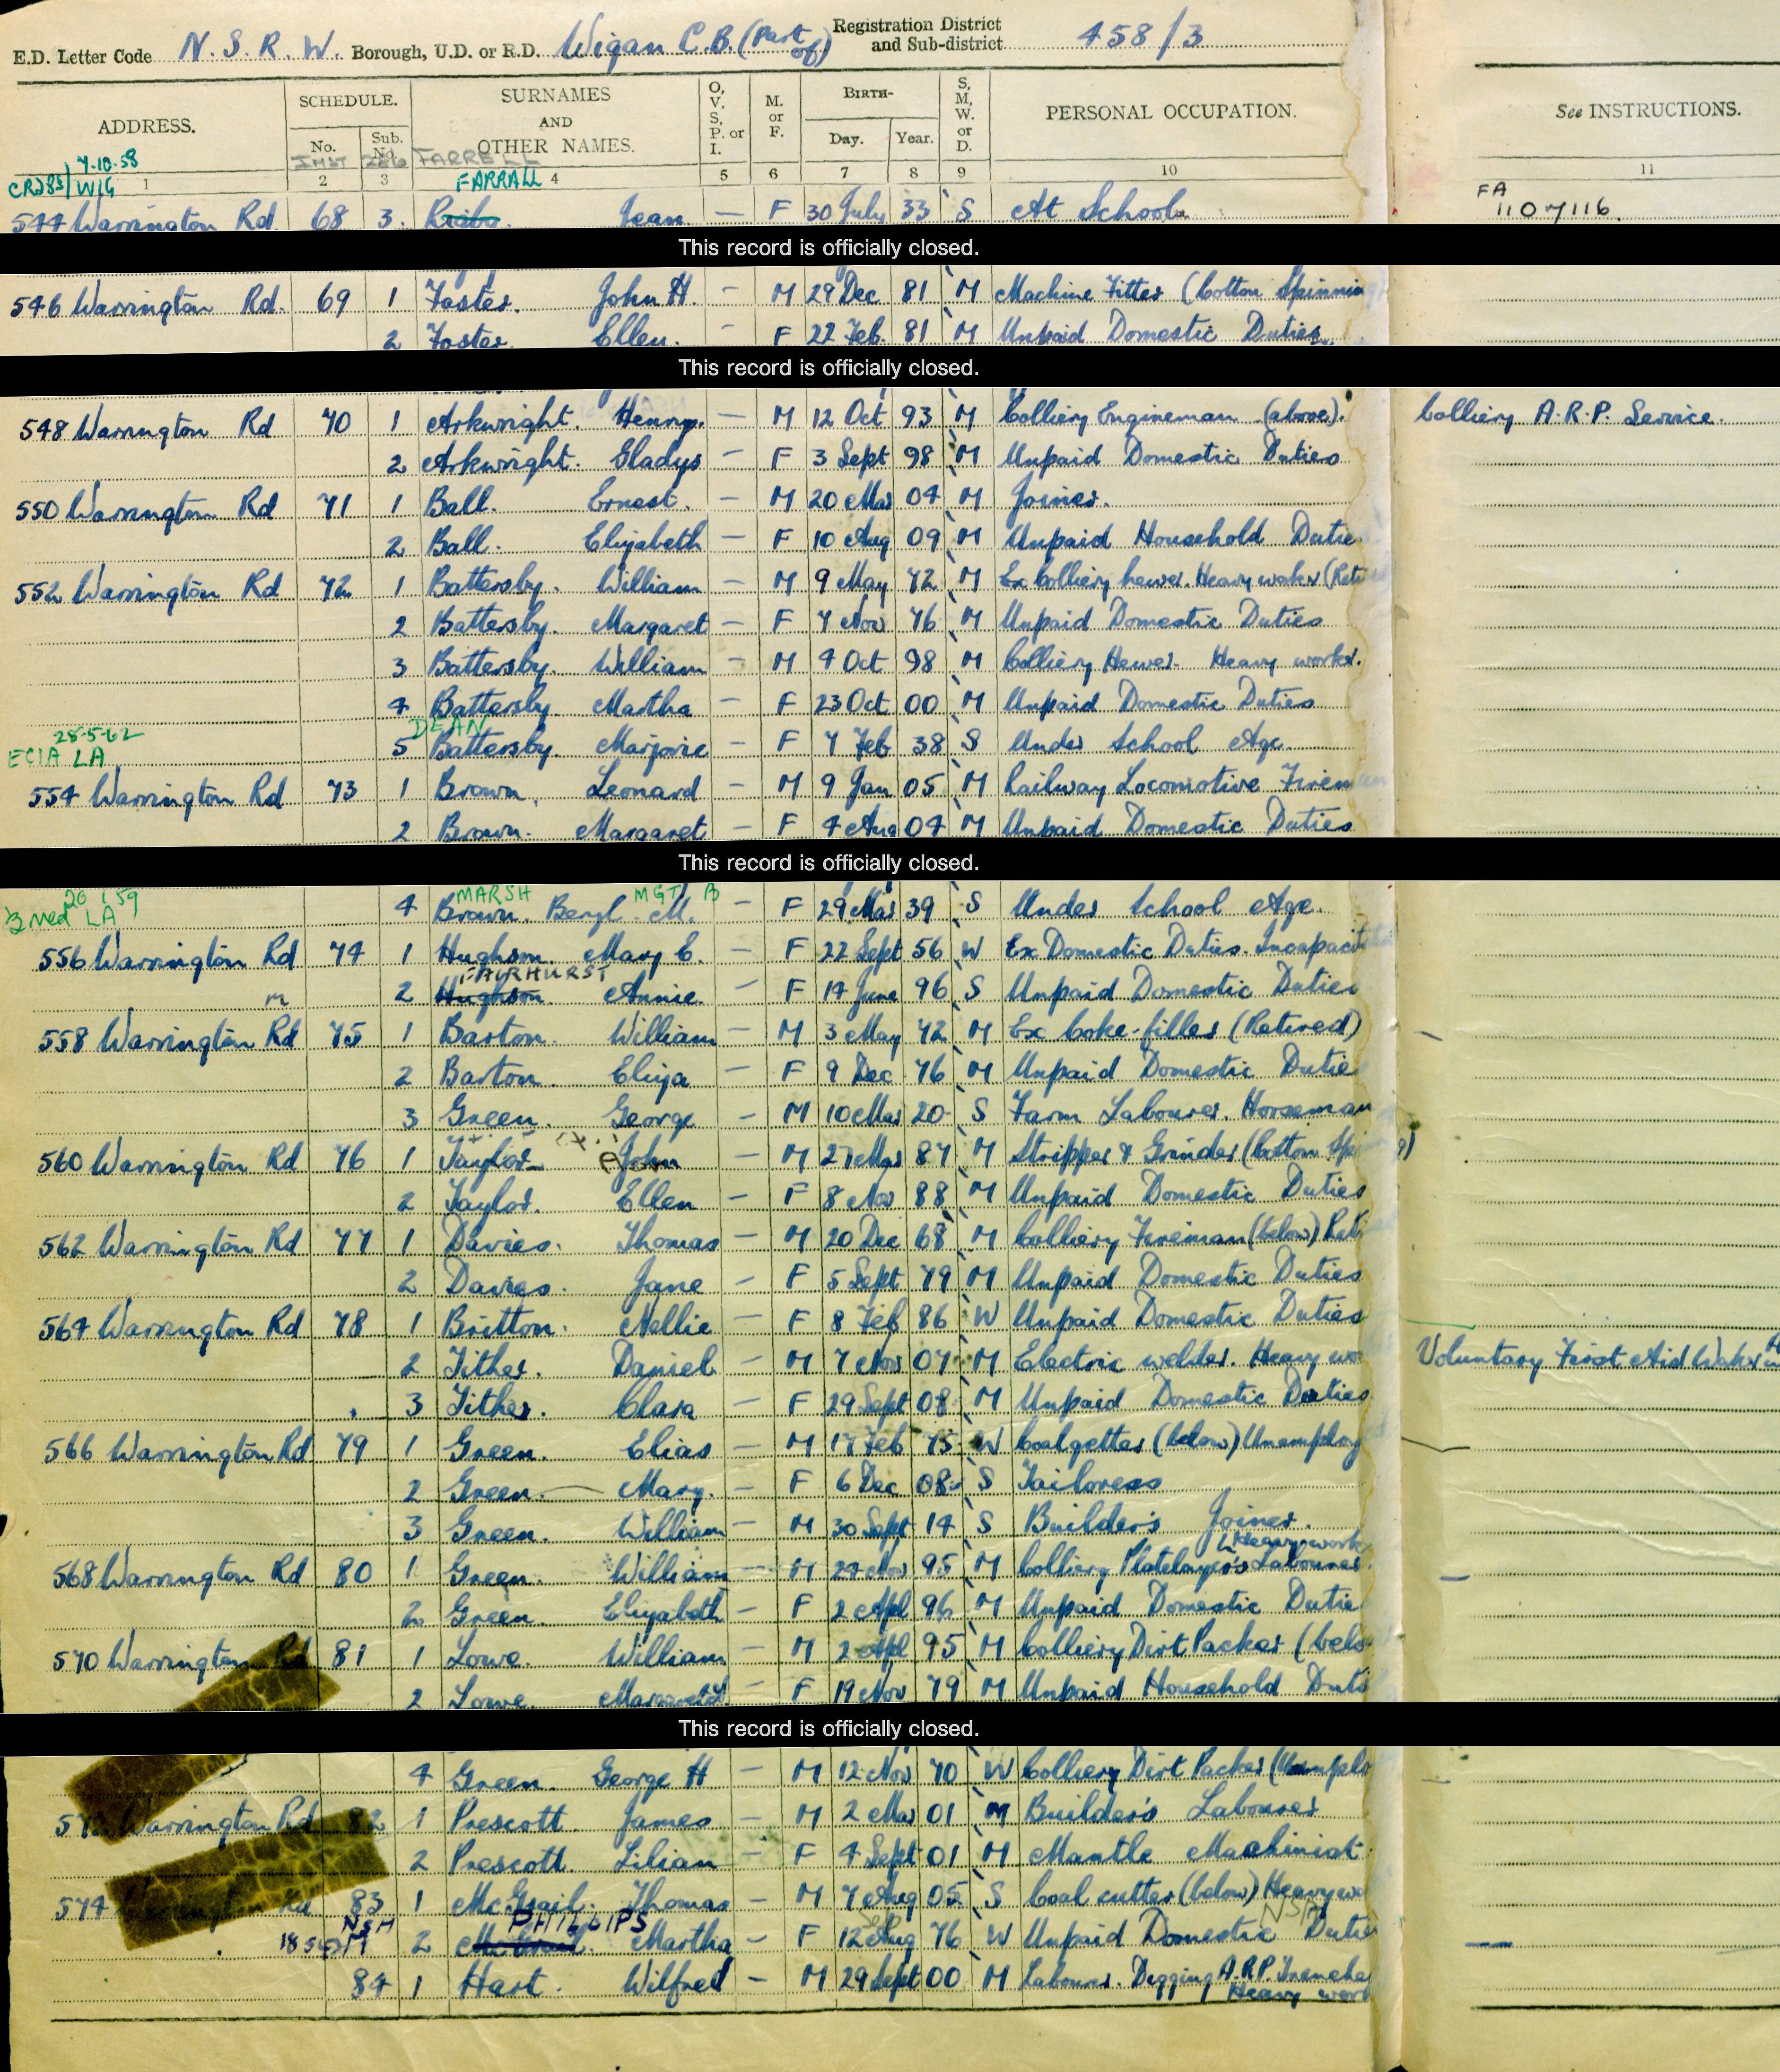 Registration District
E.D. Letter Code N. S. R. W. Borough, U.D. or R.D. Wigan C.B. (Part of) and Sub-district 458/3
ADDRESS. SCHEDULE. SURNAMES AND OTHER NAMES. O, V, S, P. or I. M. or F. BIRTH- S, M, W. or D. PERSONAL OCCUPATION. See INSTRUCTIONS.
No. Sub. No. Day. Year.
7.10.58 INST 286 FARRELL
CR283/WIG 1 2 3 FARRALL 4 5 6 7 8 9 10 11
544 Warrington Rd. 68 3. Jean — F 30 July 33 S At School. FA 110 7116.
This record is officially closed.
546 Warrington Rd. 69 1 Foster. John H. - M 29 Dec 81 M Machine Fitter (Cotton Spinning
2 Foster. Ellen. - F 22 Feb. 81 M Unpaid Domestic Duties.
This record is officially closed.
548 Warrington Rd 70 1 Arkwright. Henry. — M 12 Oct 93 M Colliery Engineman (above). Colliery A.R.P. Service.
2 Arkwright. Gladys — F 3 Sept 98 M Unpaid Domestic Duties
550 Warrington Rd 71 1 Ball. Ernest. — M 20 Mar 04 M Joiner.
2 Ball. Elizabeth — F 10 Aug 09 M Unpaid Household Dutie
552 Warrington Rd 72 1 Battersby. William — M 9 May 72 M Ex Colliery hewer. Heavy worker (Reti
2 Battersby. Margaret — F 7 Nov 76 M Unpaid Domestic Duties
3 Battersby. William — M 4 Oct 98 M Colliery Hewer. Heavy worker.
4 Battersby. Martha — F 23 Oct 00 M Unpaid Domestic Duties
28-5-62 DEAN
ECIA LA 5 Battersby. Marjorie — F 7 Feb 38 S Under School Age.
554 Warrington Rd 73 1 Brown. Leonard — M 9 Jan 05 M Railway Locomotive Firem
2 Brown. Margaret — F 4 Aug 04 M Unpaid Domestic Duties
This record is officially closed.
20 1 59 MARSH MGT B
LA 4 Brown. Beryl M. — F 29 Mar 39 S Under School Age.
556 Warrington Rd 74 1 Hughson. Mary E. — F 22 Sept 56 W Ex Domestic Duties. Incapacit
FAIRHURST
m 2 Hughson. Annie. — F 14 June 96 S Unpaid Domestic Duties
558 Warrington Rd 75 1 Barton. William — M 3 May 72 M Ex Coke-filler (Retired)
2 Barton. Eliza — F 9 Dec 76 M Unpaid Domestic Duties
3 Green. George — M 10 Mar 20 S Farm Labourer. Horseman
560 Warrington Rd 76 1 Taylor John — M 27 Mar 87 M Stripper & Grinder (Cotton Spi g)
2 Taylor. Ellen — F 8 Nov 88 M Unpaid Domestic Duties
562 Warrington Rd 77 1 Davies. Thomas — M 20 Dec 68 M Colliery Fireman (below) Reti
2 Davies. Jane — F 5 Sept 79 M Unpaid Domestic Duties
564 Warrington Rd 78 1 Britton. Nellie — F 8 Feb 86 W Unpaid Domestic Duties
2 Tither. Daniel — M 7 Nov 07 M Electric welder. Heavy wo Voluntary First Aid Worker
3 Tither. Clara — F 29 Sept 08 M Unpaid Domestic Duties
566 Warrington Rd 79 1 Green. Elias — M 17 Feb 75 W Coalgetter (below) Unemploy
2 Green. Mary. — F 6 Dec 08 S Tailoress
3 Green. William — M 30 Sept 14 S Builder's Joiner.
Heavy work
568 Warrington Rd 80 1 Green. William — M 24 Nov 95 M Colliery Platelayer's Labourer.
2 Green. Elizabeth — F 2 Apl 96 M Unpaid Domestic Dutie
570 Warrington Rd 81 1 Lowe. William — M 2 Apl 95 M Colliery Dirt Packer (belo
2 Lowe. — F 19 Nov 79 M Unpaid Household Duti
This record is officially closed.
4 Green. George H — M 12 Nov 70 W Colliery Dirt Packer (Unemplo
Warrington Rd 82 1 Prescott. James — M 2 Mar 01 M Builder's Labourer
2 Prescott. Lilian — F 4 Sept 01 M Mantle Machinist
574 83 1 McGrail. Thomas — M 7 Aug 05 S Coal cutter (below) Heavy wo
NSH PHILLIPS NSH
2 McGrail. Martha — F 12 Aug 76 W Unpaid Domestic Dutie
84 1 Hart. Wilfred — M 29 Sept 00 M Labourer. Digging A.R.P. Trenche
Heavy work